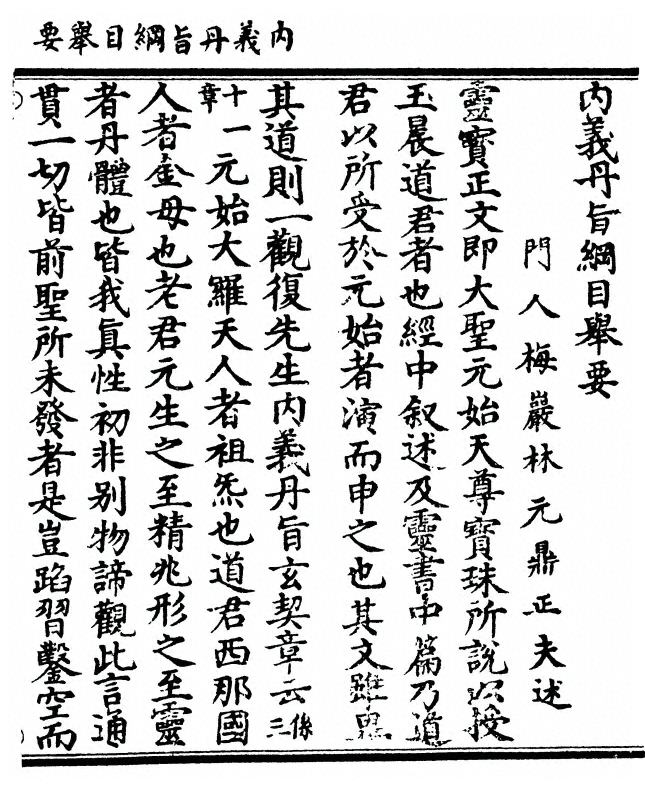 內義丹旨綱目舉要
內義丹旨綱目舉要
門人梅巖林元鼎正夫述
靈寶正文即大聖元始天尊寶珠所說以授
玉晨道君者也經中叙述及靈書中篇乃道
君以所受於元始者演而申之也其文雖異
其道則一觀復先生內義丹旨玄契章云係三
十章一元始大羅天人者祖炁也道君西那國
人者金母也老君元生之至精兆形之至靈
者丹體也皆我眞性初非别物諦觀此言通
貫一切皆前聖所未發者是豈蹈習鑿空而